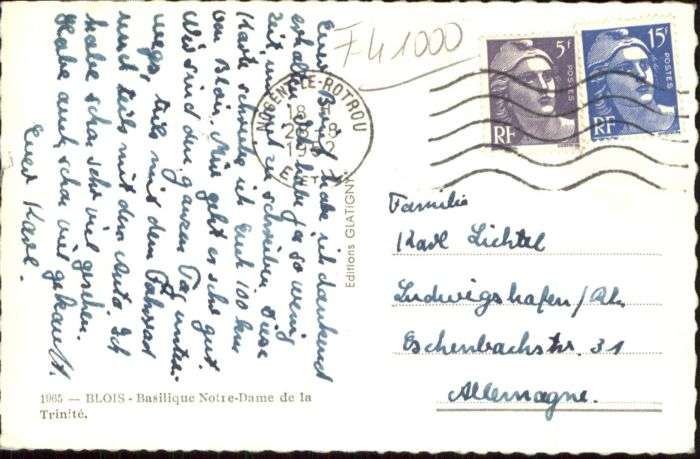 Euren Brief habe ich dankend
erhalten. Ich habe ja so wenig
Zeit um zu schreiben. Diese
Karte schreibe ich Euch 100 km
von Blois. Mir geht es sehr gut.
Wir sind den ganzen Tag unter-
wegs, teils mit dem Fahrrad
und teils mit dem Auto. Ich
habe schon sehr viel gesehen.
Habe auch schon viel gekauft.
Euer Karl.
F41000
NOGENT-LE-ROTROU
18
28-8
5F
POSTES
RF
15F
POSTES
RF
Editions GLATIGNY
Familie
Karl Lichtel
Ludwigshafen/Rh.
Eschenbachstr. 31
Allemagne.
1965 — BLOIS - Basilique Notre-Dame de la
Trinité.